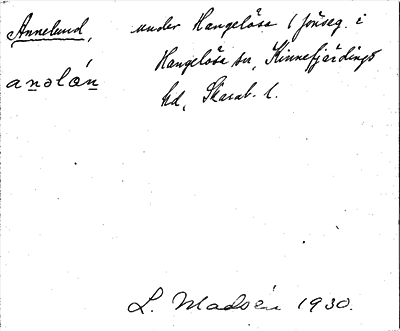 Annelund, under Hangelösa 1 Jönseg. i
Hangelösa sn, Kinnefjärdings
hd, Skarab. l.
anəlón
L. Madsén 1930.